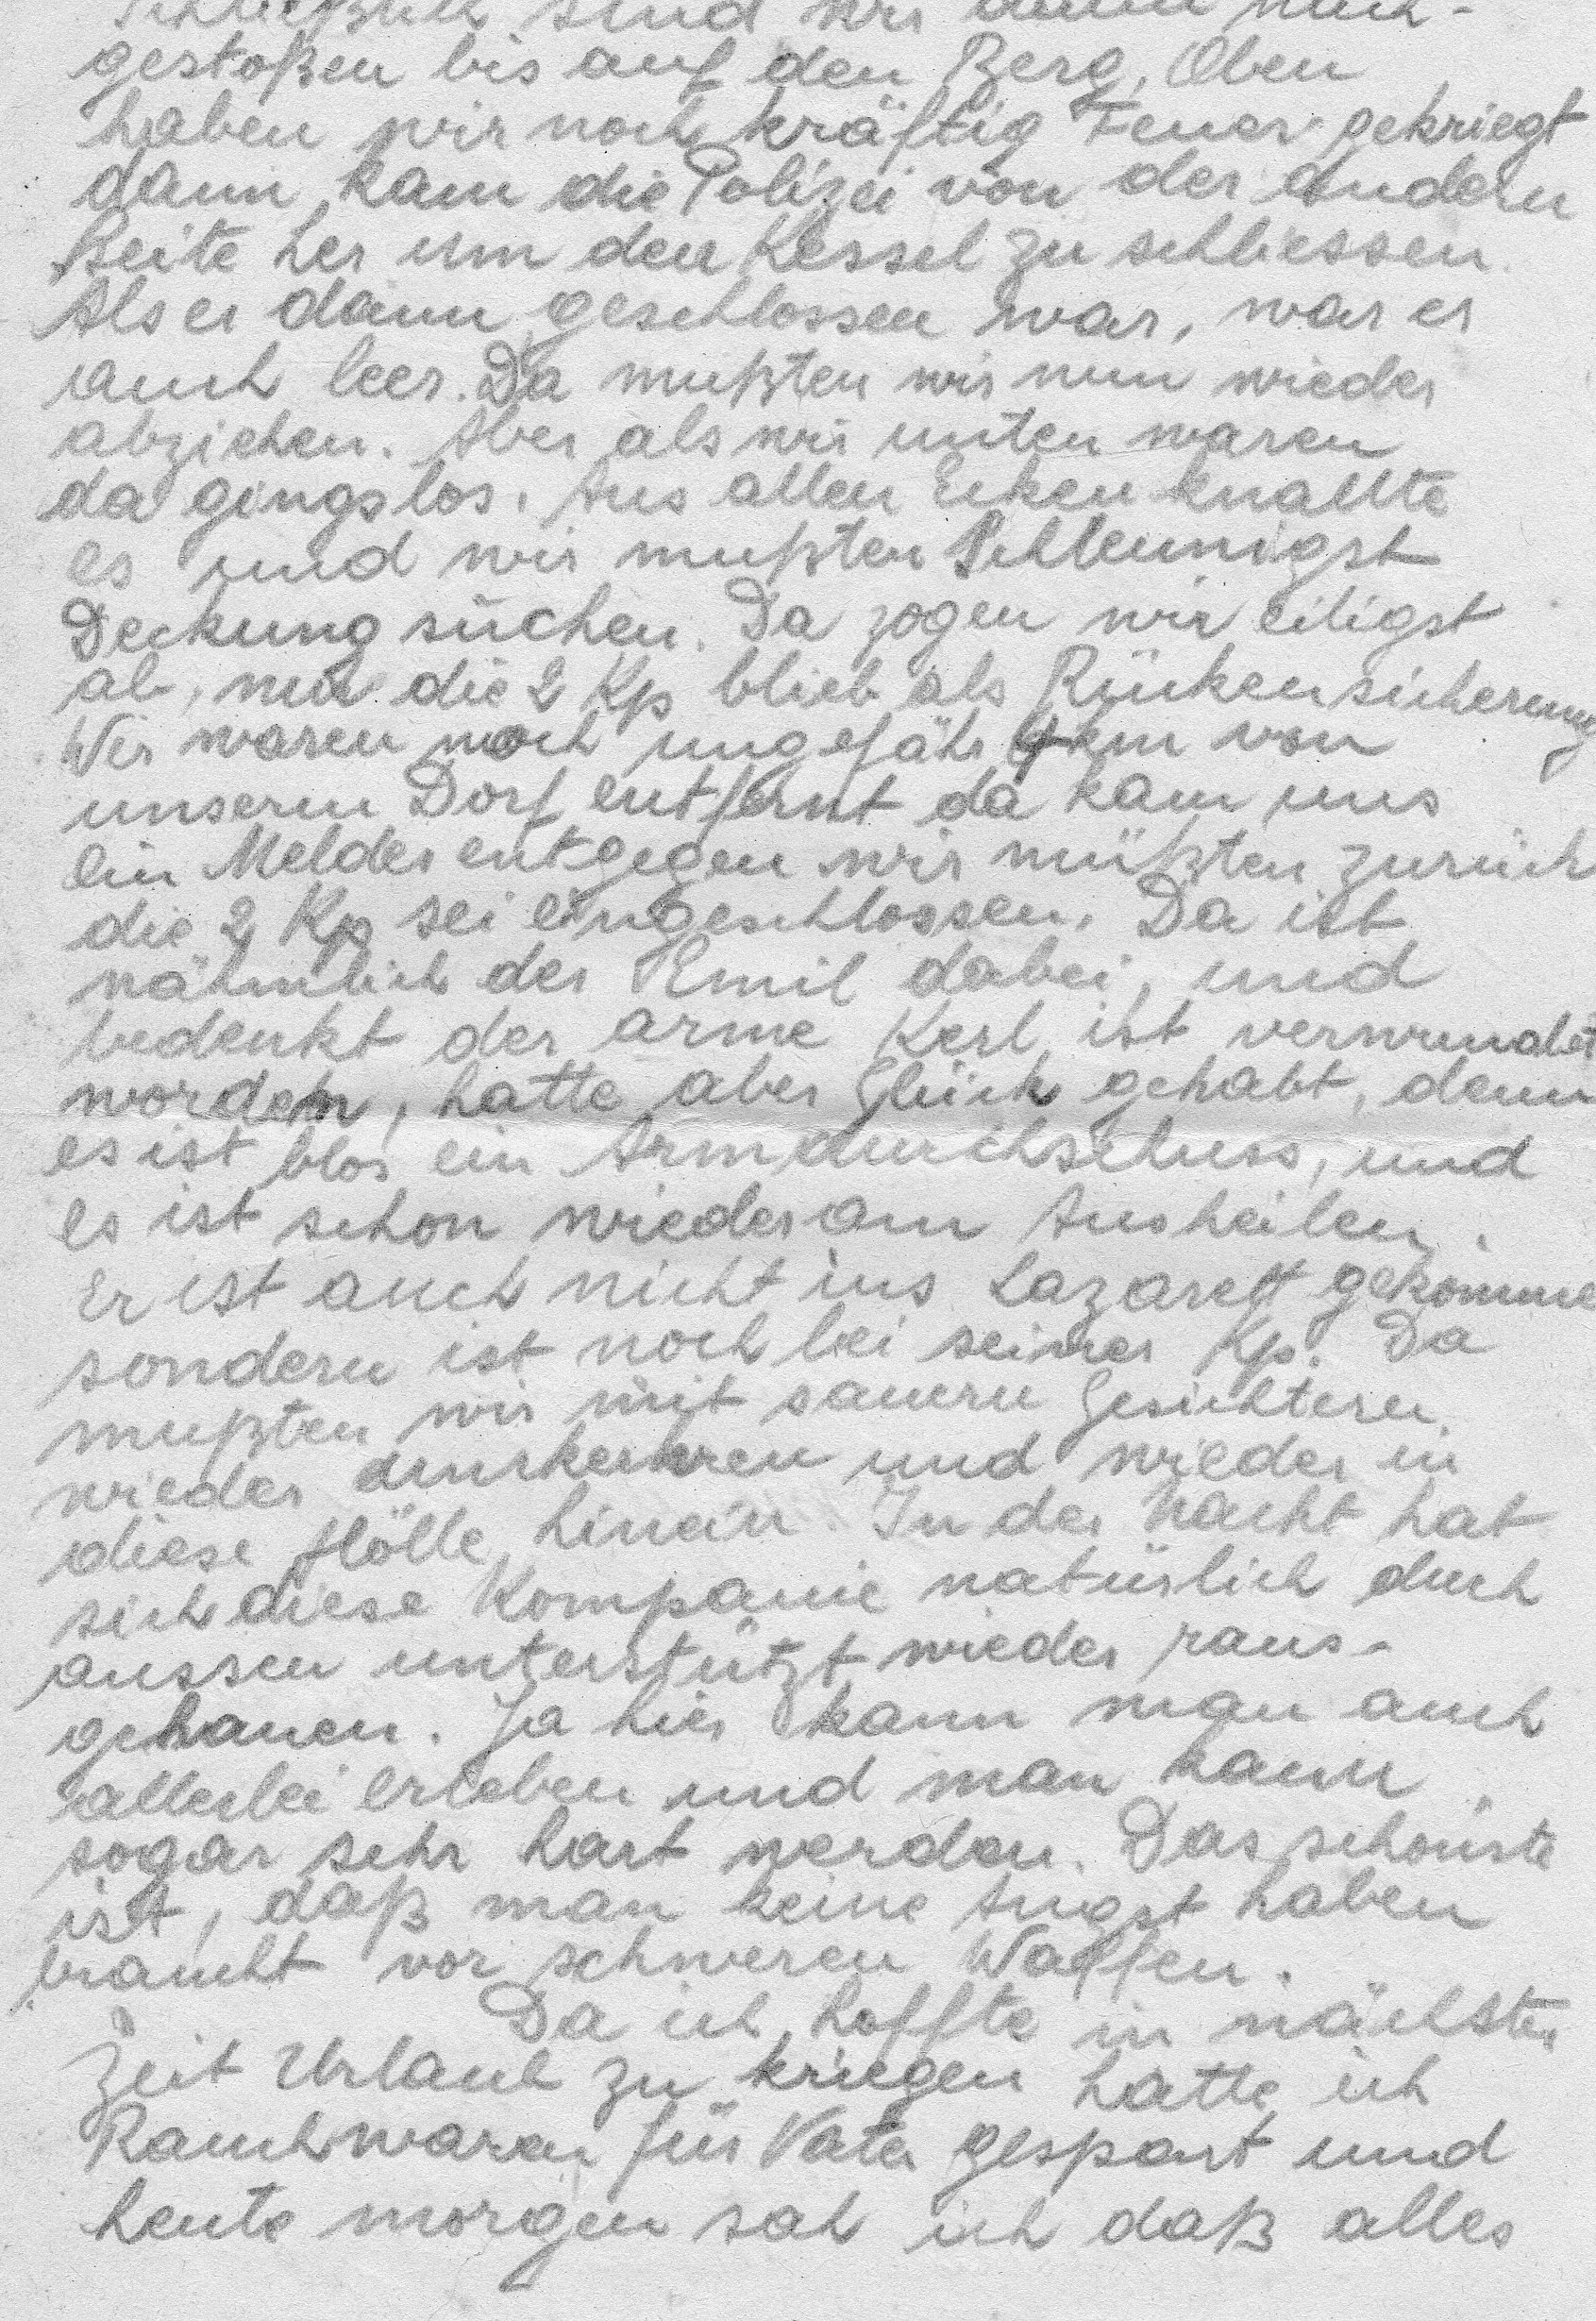 Schließlich sind wir dann nach-
gestoßen bis auf den Berg, Oben
haben wir noch kräftig Feuer gekriegt
dann kam die Polizei von der andern
Seite her um den Kessel zu schliessen.
Als er dann geschlossen war, war er
auch leer. Da mußten wir nun wieder
abziehen. Aber als wir unten waren
da gings los. Aus allen Ecken knallte
es und wir mußten Schleunigst
Deckung suchen. Da zogen wir eiligst
ab, nur die 2 Kp blieb als Rückensicherung
Wir waren noch ungefähr 4 km von
unserm Dorf entfernt da kam uns
ein Melder entgegen wir müßten zurück
die 2 Kp sei eingeschlossen. Da ist
nähmlich der Emil dabei, und
bedenkt der arme Kerl ist verwundet
worden, hatte aber Glück gehabt, denn
es ist blos ein Armdurchschuss, und
es ist schon wieder am Ausheilen.
Er ist auch nicht ins Lazarett gekomme
sondern ist noch bei seiner Kp. Da
mußten wir mit sauern Gesichtern
wieder umkehren und wieder in
diese Hölle hinein. In der Nacht hat
sich diese Kompanie natürlich duch
aussen unterstützt wieder raus-
gehauen. Ja hier kann man auch
allerlei erleben und man kann
sogar sehr hart werden. Das schönste
ist, daß man keine Angst haben
braucht vor schweren Waffen.
Da ich hoffte in nächster
Zeit Urlaub zu kriegen hatte ich
Rauchwaren für Vater gespart und
heute morgen sah ich daß alles